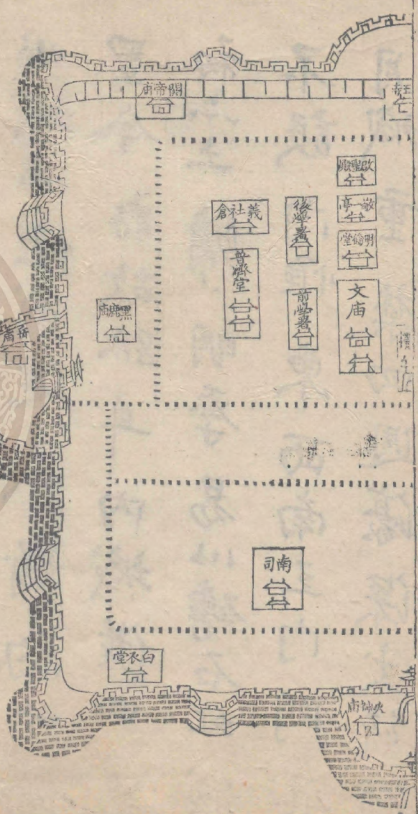 關帝廟
啟聖祠
敬一亭
明倫堂
文庙
後學署
前學署
義社倉
普濟堂
黑虎庙
南司
白衣堂
火神庙